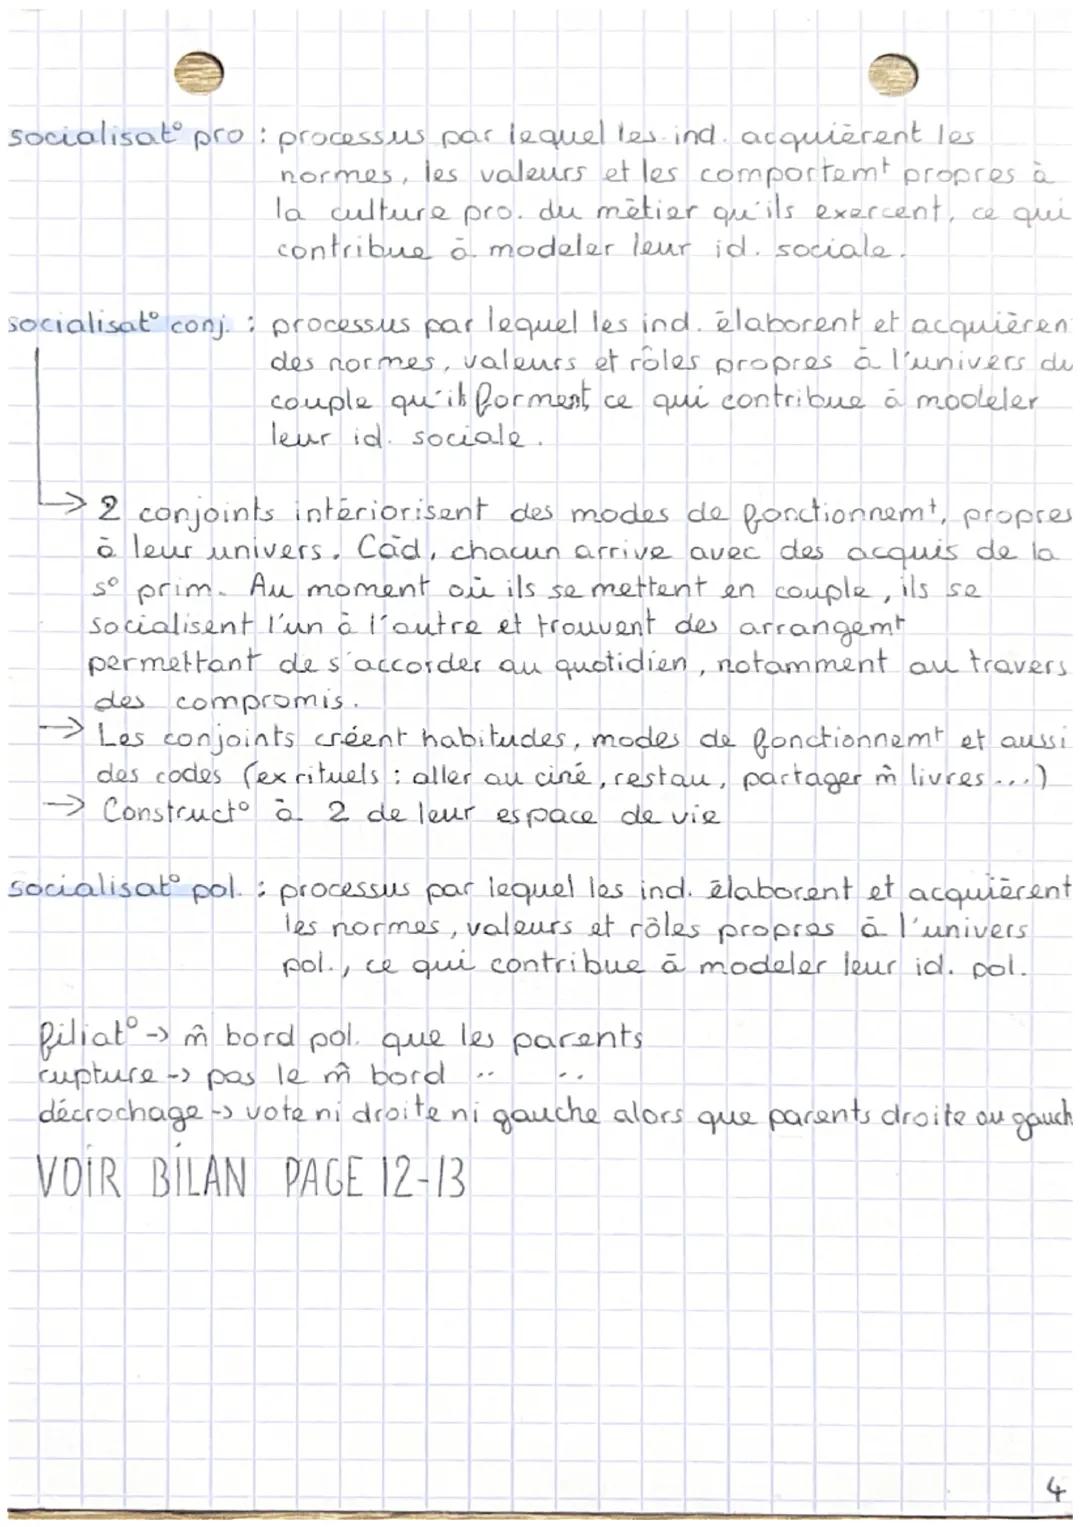 socialisat° pro : processus par lequel les ind. acquièrent les
normes, les valeurs et les comportemt propres à
la culture pro. du métier qu'ils exercent, ce qui
contribue à modeler leur id. sociale.
socialisat° conj. : processus par lequel les ind. élaborent et acquièren
des normes, valeurs et rôles propres à l'univers du
couple qu'ils forment, ce qui contribue à modeler
leur id. sociale.
→ 2 conjoints intériorisent des modes de fonctionnemt, propres
à leur univers. Càd, chacun arrive avec des acquis de la
s° prim. Au moment où ils se mettent en couple, ils se
socialisent l'un à l'autre et trouvent des arrangemt
permettant de s'accorder au quotidien, notamment au travers
des compromis.
→ Les conjoints créent habitudes, modes de fonctionnemt et aussi
des codes (ex rituels : aller au ciné, restau, partager m̂ livres...)
→ Construct° à 2 de leur espace de vie
socialisat° pol. : processus par lequel les ind. élaborent et acquièrent
les normes, valeurs et rôles propres à l'univers
pol., ce qui contribue à modeler leur id. pol.
filiat° -> m̂ bord pol. que les parents
rupture -> pas le m̂ bord .. ..
décrochage -> vote ni droite ni gauche alors que parents droite ou gauch
VOIR BILAN PAGE 12-13
4